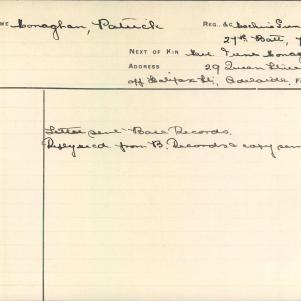 ME Monaghan, Patrick REG.
27th Batt,
NEXT OF KIN Irene Monag
ADDRESS 29 Queen Stree
off Halifax St, Adelaide.
Letter sent Base Records.
Reply recd from B. Records & copy sen